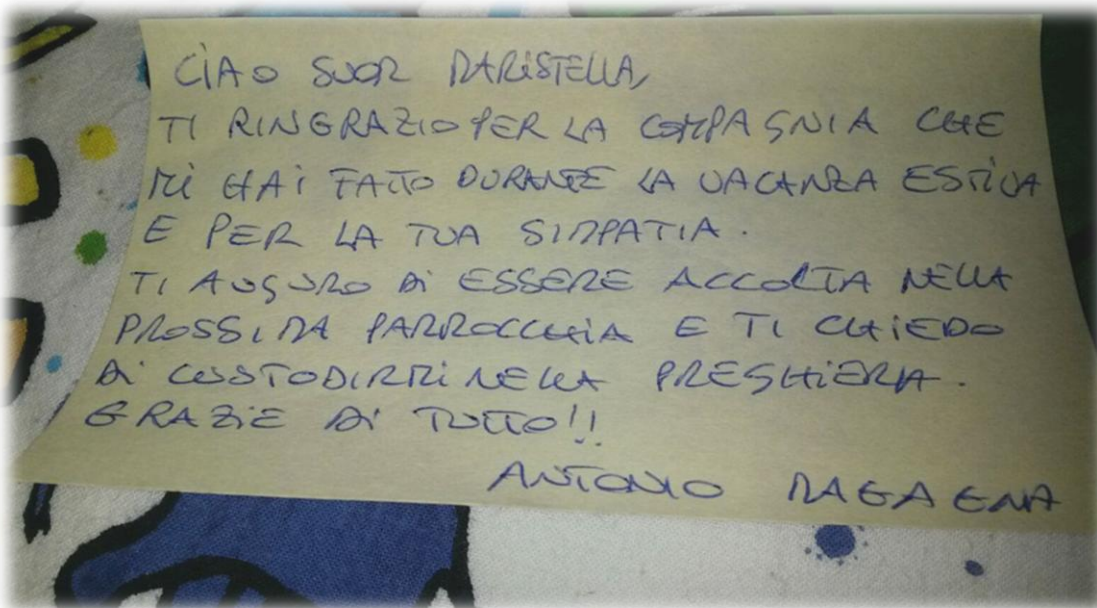 CIAO SUOR MARISTELLA,
TI RINGRAZIO PER LA COMPAGNIA CHE
MI HAI FATTO DURANTE LA VACANZA ESTIVA
E PER LA TUA SIMPATIA.
TI AUGURO DI ESSERE ACCOLTA NELLA
PROSSIMA PARROCCHIA E TI CHIEDO
DI CUSTODIRMI NELLA PREGHIERA.
GRAZIE DI TUTTO!!
ANTONIO